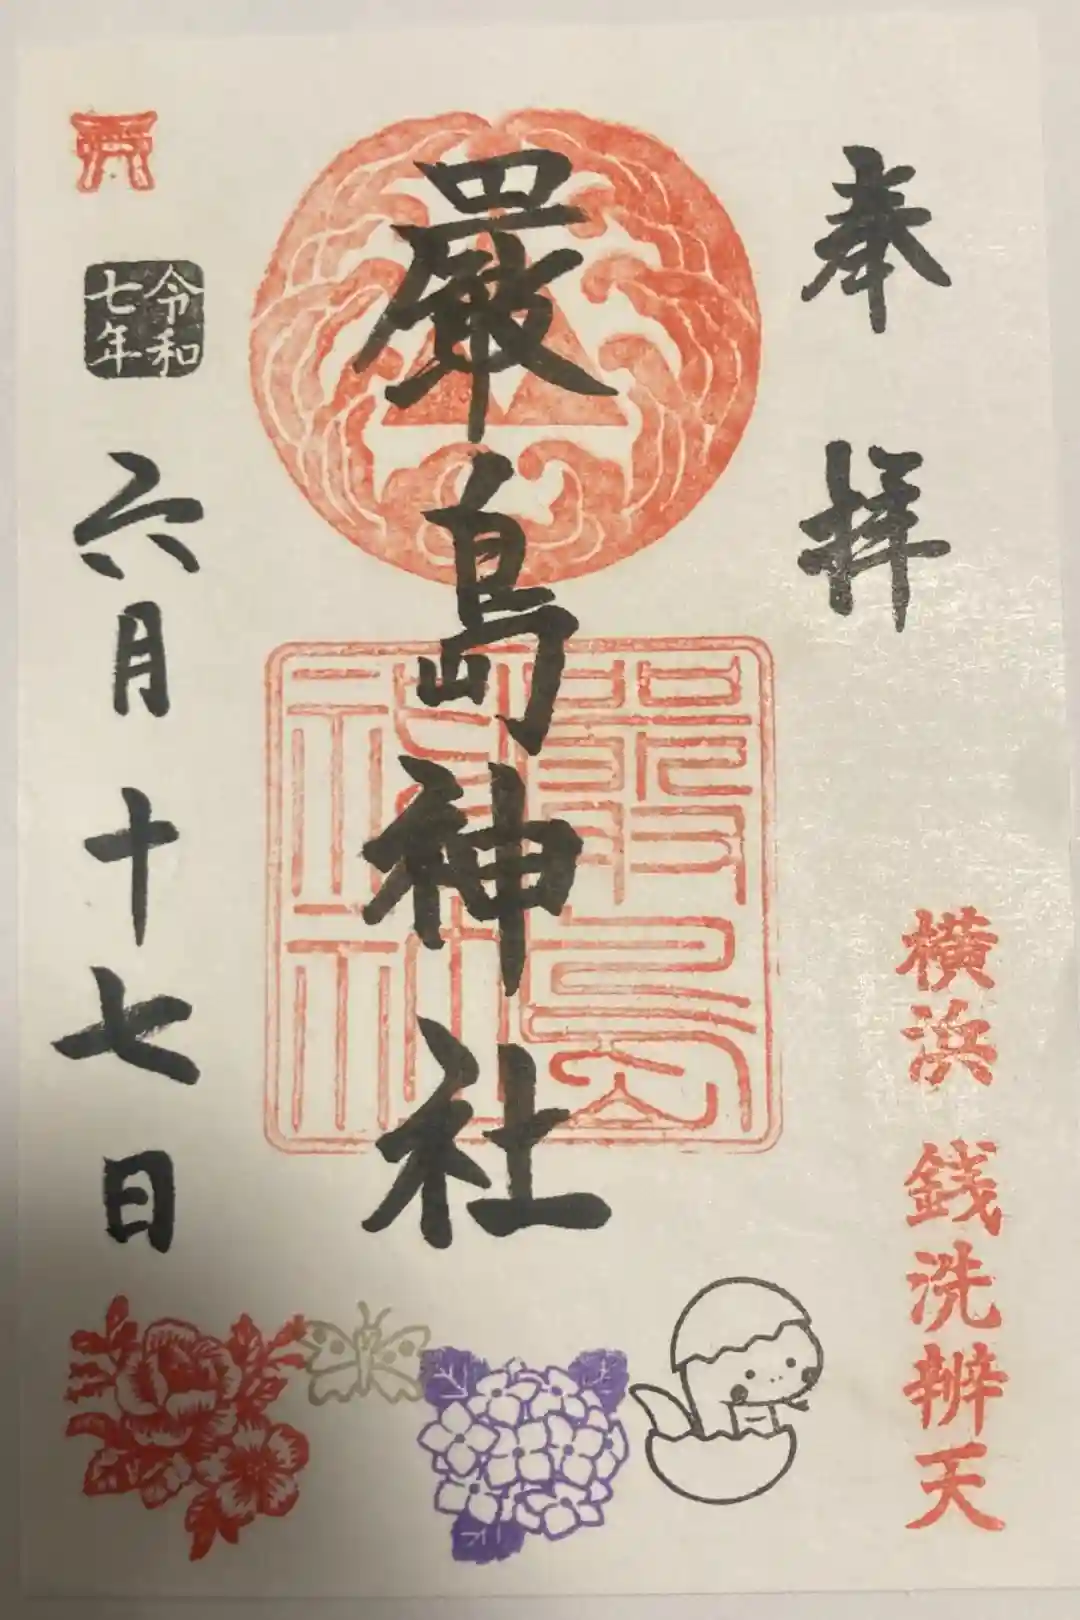 奉拝
横浜 銭洗辨天
嚴島神社
嚴島
神社
令和
七年
六月十七日